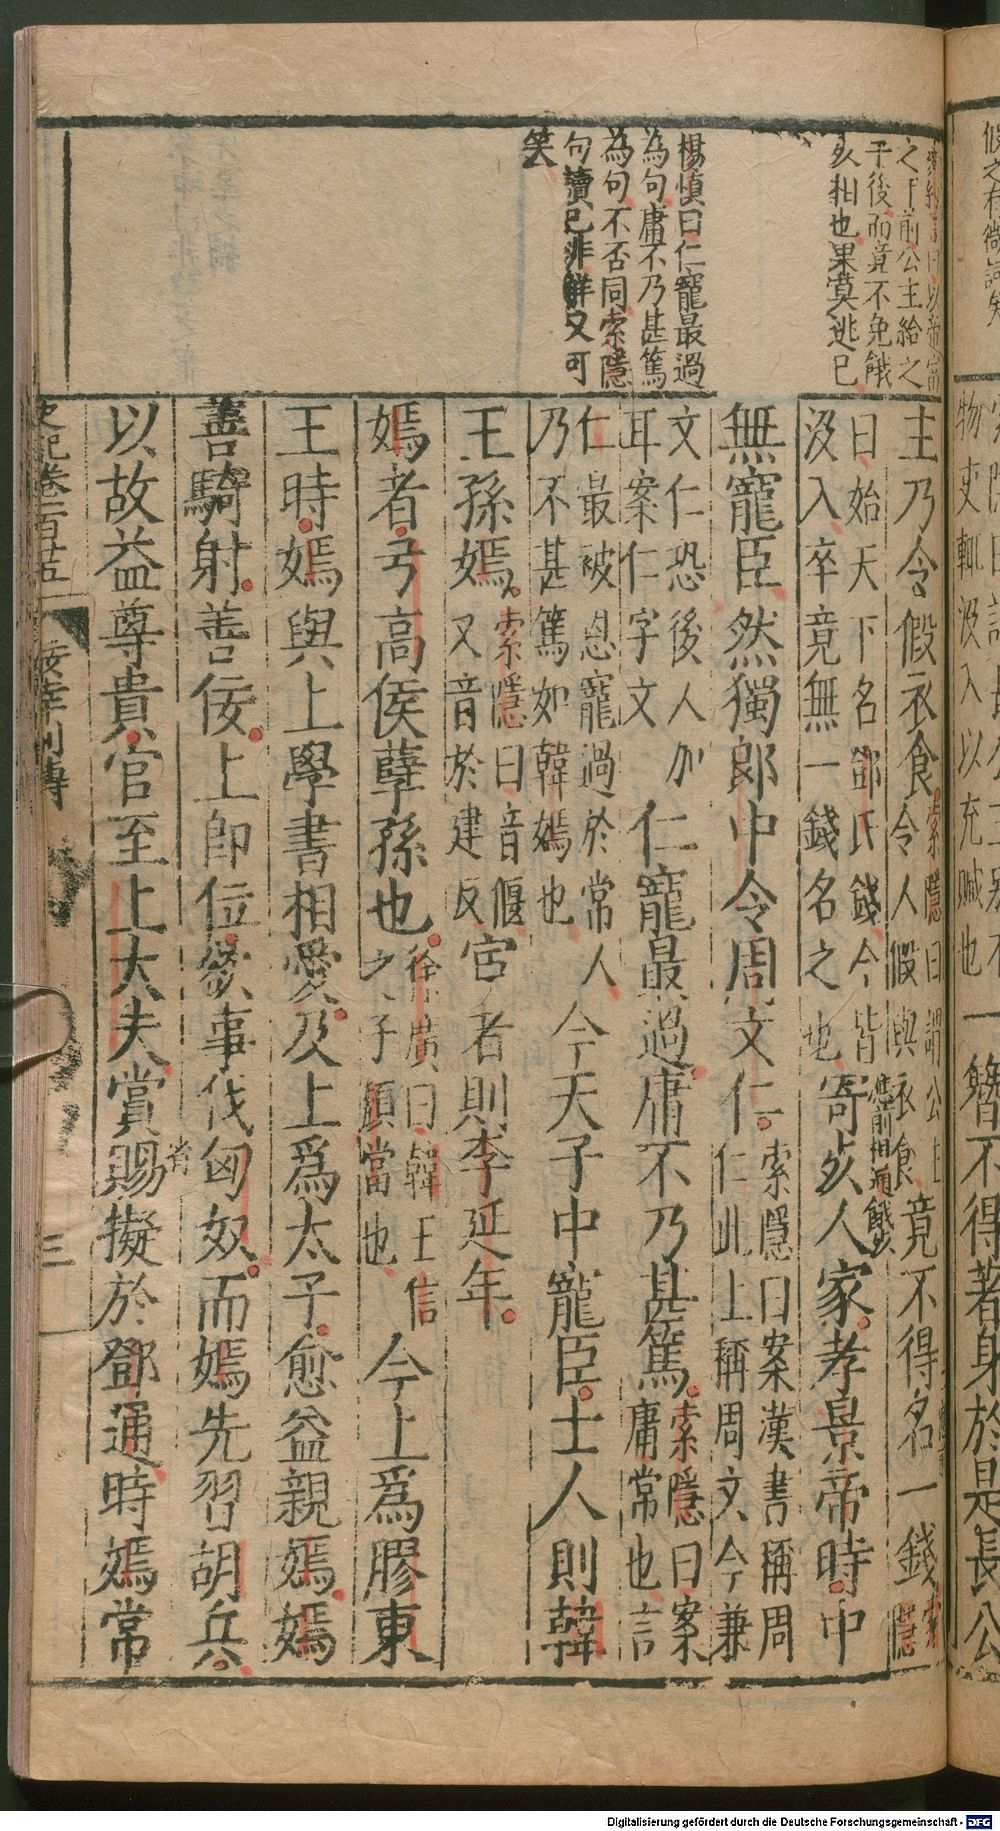 之下前公主給之
于後而竟不免餓
死相也果莫逃已
楊慎曰仁寵最過
為句庸不乃甚篤
為句不否同索隱
句讀已非鮮又可
笑
主乃令假衣食索隱曰謂公主令人假與衣食竟不得名一錢索隱
曰始天下名鄧氏錢今皆沒入卒竟無一錢名之也寄死人家孝景帝時中
無寵臣然獨郎中令周文仁索隱曰案漢書稱周仁此上稱周文今兼
文仁恐後人加耳案仁字文仁寵最過庸不乃甚篤索隱曰案庸常也言
仁最被恩寵過於常人乃不甚篤如韓嫣也今天子中寵臣士人則韓
王孫嫣索隱曰音偃又音於建反宦者則李延年
嫣者弓高侯孽孫也徐廣曰韓王信之子頹當也今上爲膠東
王時嫣與上學書相愛及上爲太子愈益親嫣嫣
善騎射善佞上即位欲事伐匈奴而嫣先習胡兵
以故益尊貴官至上大夫賞賜擬於鄧通時嫣常
史記卷一百廿五
佞幸列傳
三
簪不得著身於是長公
物吏輒沒入以充贓也
Digitalisierung gefördert durch die Deutsche Forschungsgemeinschaft - DFG